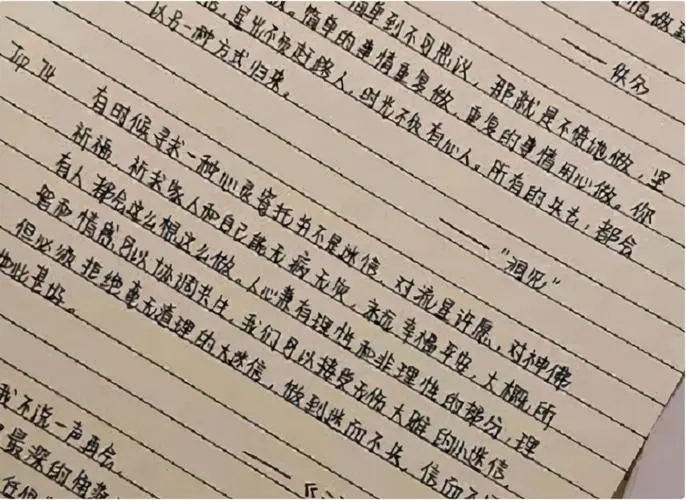 —— 佚名
单到不可思议，那就是不停地做，坚
简单的事情重复做，重复的事情用心做。你
星光不负赶路人，时光不负有心人。所有的失去，都会
以另一种方式归来。
—— “洞见”
Top 74
有时候寻求一种心灵寄托并不是迷信，对流星许愿，对神佛
祈福，祈求家人和自己能无病无灾，未来幸福平安，大概所
有人都会这么想这么做。人心兼有理性和非理性的部分，理
智和情感可以协调共生，我们可以接受无伤大雅的小迷信，
但必须拒绝毫无道理的大迷信，做到迷而不失，信而不
如此甚好。
我不说一声再会，
最深的